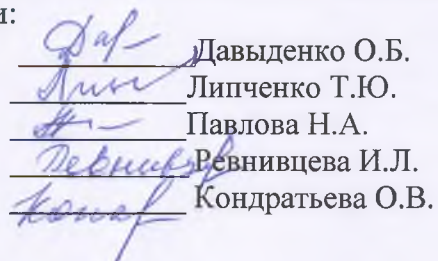 и:
Давыденко О.Б.
Липченко Т.Ю.
Павлова Н.А.
Ревнивцева И.Л.
Кондратьева О.В.